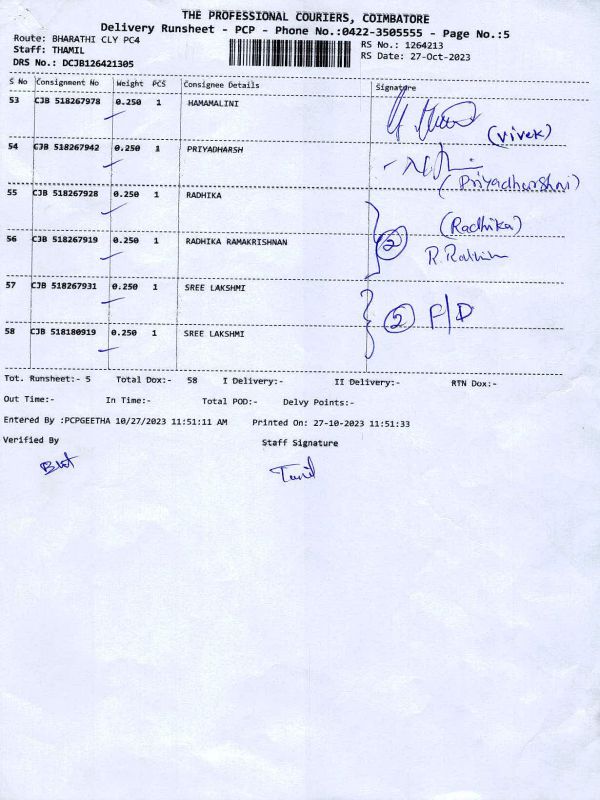 THE PROFESSIONAL COURIERS, COIMBATORE
Delivery Runsheet - PCP - Phone No.:0422-3505555 - Page No.:5
Route: BHARATHI CLY PC4
Staff: THAMIL
DRS No.: DCJB126421305
RS No.: 1264213
RS Date: 27-Oct-2023
S No Consignment No Weight PCS Consignee Details Signature
53 CJB 518267978 0.250 1 HAMAMALINI
(vivek)
54 CJB 518267942 0.250 1 PRIYADHARSH
(Priyadharshni)
55 CJB 518267928 0.250 1 RADHIKA
(Radhika)
56 CJB 518267919 0.250 1 RADHIKA RAMAKRISHNAN
2 R.
57 CJB 518267931 0.250 1 SREE LAKSHMI
2 F/D
58 CJB 518180919 0.250 1 SREE LAKSHMI
Tot. Runsheet:- 5 Total Dox:- 58 I Delivery:- II Delivery:- RTN Dox:-
Out Time:- In Time:- Total POD:- Delvy Points:-
Entered By :PCPGEETHA 10/27/2023 11:51:11 AM Printed On: 27-10-2023 11:51:33
Verified By Staff Signature